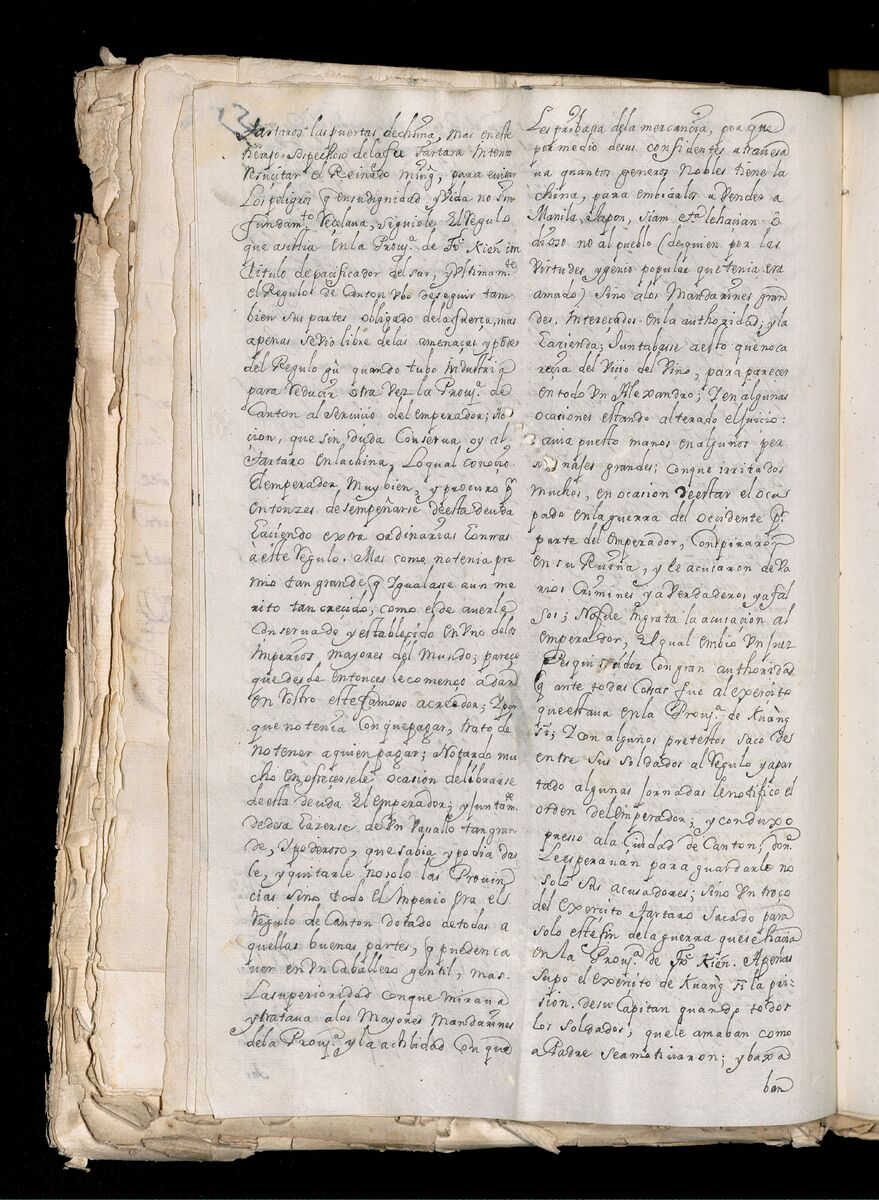 Tartaros las puertas de china, mas en este
tiempo sospechoso de la fee Tartara intento
resucitar el Reinado Ming, para evitar
los peligros q en su dignidad y vida no sin
fundam.to Reçelava, siguiole el Regulo
que asistia en la Prov.a de Fo Kien con
titulo de pacificador del sur, y ultimam.te
el Regulo de Canton Ubo de seguir tam
bien sus partes obligado de la fuerça, mas
apenas se vio libre de las amenaças y poder
del Regulo gu quando tubo industria
para reducir otra vez la Prov.a de
Canton al servicio del emperador; Ac
cion, que sin duda Conserva oy al
Tartaro en la china, Lo qual conoçio
el emperador muy bien, y procuro p.r
entonzes desempeñarse de esta deuda
haciendo extra ordinarias honrras
a este Regulo. Mas como no tenia pre
mio tan grande q Igualasse a un me
rito tan crecido, como el de averle
Conservado y establecido en Uno de los
Imperios mayores del Mundo; pareçe
que desde entonces le començo a dar
en rostro este famoso acreedor; Y por
que no tenia con que pagar, trato de
no tener a quien pagar; No tardo mu
cho en ofrecersele ocasion de librarse
de esta deuda el emperador; y juntam.te
de desa hazerse de Un Vasallo tan gran
de, y poderoso, que sabia y podia dar
le, y quitarle no solo las Provin
cias sino todo el Imperio era el
Regulo de Canton dotado de todas a
quellas buenas partes, q pueden ca
ver en Un Caballero gentil, mas
La superioridad con que mirava
y tratava a los Mayores Mandarines
de la Prov.a y la actibidad con que
Les privava de la mercancia, porque
por medio de sus confidentes atravesa
va quantos generos Nobles tiene la
china, para embiarlos a Vender a
Manila, Japon, Siam et.a le havian o
dioso no al pueblo (de quien por las
virtudes y genio popular que tenia era
amado) sino a los Mandarines gran
des, Interezados en la authoridad, y la
hazienda; Juntabasse a esto que no ca
recia del Vicio del Vino, para parecer
en todo Un Alexandro; Y en algunas
ocasiones estando alterado el juicio
havia puesto manos en algunos per
sonajes grandes; Con que irritados
muchos, en ocasion de estar el ocu
pado en la guerra del occidente p.r
parte del Emperador, Conspiraron
en su Ruina, y le acusaron de Va
rios Crimines ya Verdaderos ya fal
sos; No fue ingrata la acusacion al
emperador, el qual embio Un Juez
Pesquisidor con gran authoridad
q ante todas Cosas fue al exercito
que estava en la Prov.a de Kuang
si; Y con algunos pretextos saco de
entre sus soldados al Regulo y apar
tado algunas jornadas le notifico el
orden del emperador; y conduxo
presso a la Ciudad de Canton, don.e
Le esperavan para guardarle no
solo sus acusadores; sino Un troço
del Exercito Tartaro sacado para
solo este fin de la guerra que se hacia
en la Prov.a de Fo Kien. Apenas
supo el exercito de Kuang si la pri-
sion de su Capitan quando todos
los soldados, que le amaban como
a Padre se amotinaron; y baxa
ban